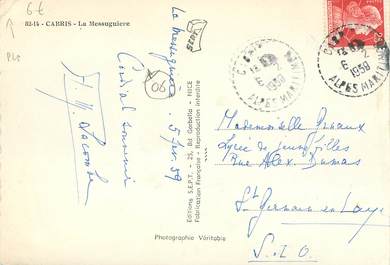 6€
82-14 - CABRIS - La Messuguière
La Messuguière. 5 fév. 59
Cordial souvenir
Editions S.E.P.T. - 25, Bd Gorbella - NICE
Fabrication Française - Reproduction interdite
Photographie Véritable
06
CABRIS
6 -2
1959
ALPES MARITIMES
CABRIS
6 -2
1959
ALPES MARITIMES
Mademoiselle
Lycée de jeunes filles
Rue Alex. Dumas
St Germain en Laye
S. & O.